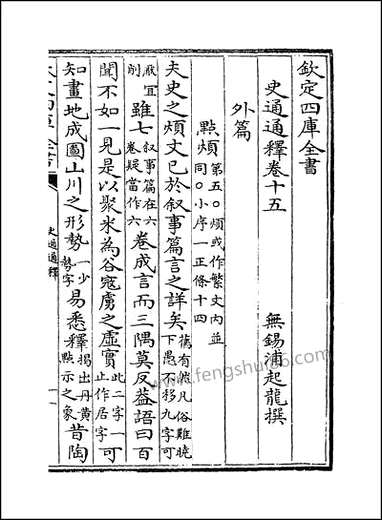 欽定四庫全書
史通通釋卷十五
無錫浦起龍撰
外篇
點煩 第五○煩或作繁文内並同○小序一正條十四
夫史之煩文已於叙事篇言之詳矣 舊有然凡俗難曉下愚不移九字可
厭宜削 雖七 叙事篇在六卷疑當作六 卷成言而三隅莫反蓋語曰百
聞不如一見是以聚米為谷寇虜之虚實 此二字一止作居字 可
知畫地成圖山川之形勢 一少勢字 易悉 釋揭出丹黄點示之象 昔陶
史通通釋
www.fengshui86.com